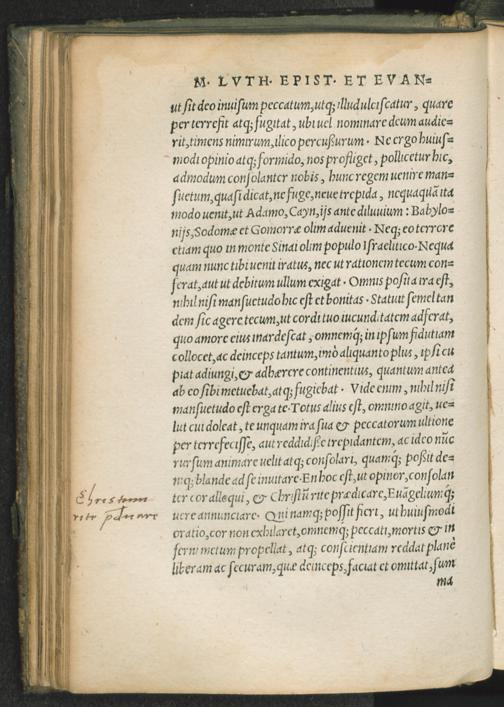 M. LVTH. EPIST. ET EVAN=
ut sit deo inuisum peccatum, utq; illud ulciscatur, quare
perterrefit atq; fugitat, ubi uel nominare deum audie=
rit, timens nimirum, ilico percussurum. Ne ergo huius=
modi opinio atq; formido, nos profliget, pollicetur hic,
admodum consolanter nobis, hunc regem uenire man=
suetum, quasi dicat, ne fuge, neue trepida, nequaquã ita
modo uenit, ut Adamo, Cayn, ijs ante diluuium: Babylo=
nijs, Sodomæ et Gomorræ olim aduenit. Neq; eo terrore
etiam quo in monte Sinai olim populo Israelitico. Nequa
quam nunc tibi uenit iratus, nec ut rationem tecum con=
ferat, aut ut debitum ullum exigat. Omnis posita ira est,
nihil nisi mansuetudo hic est et bonitas. Statuit semel tan
dem sic agere tecum, ut cordi tuo iucunditatem adferat,
quo amore eius inardescat, omnemq; in ipsum fidutiam
collocet, ac deinceps tantum, imò aliquanto plus, ipsi cu
piat adiungi, & adhærere continentius, quantum antea
ab eo sibi metuebat, atq; fugiebat. Vide enim, nihil nisi
mansuetudo est erga te. Totus alius est, omnino agit, ue=
lut cui doleat, te unquam ira sua & peccatorum ultione
perterrefecisse, aut reddidisse trepidantem, ac ideo nũc
rursum animare uelit atq; consolari, quamq; possit de=
niq; blande ad se inuitare. En hoc est, ut opinor, consolan
ter cor allequi, & Christũ rite prædicare, Euãgeliumq;
uere annunciare. Qui namq; possit fieri, ut huiusmodi
oratio, cor non exhilaret, omnemq; peccati, mortis & in
ferni metum propellat, atq; conscientiam reddat planè
liberam ac securam, quæ deinceps, faciat et omittat, sum
ma
Christum
rite